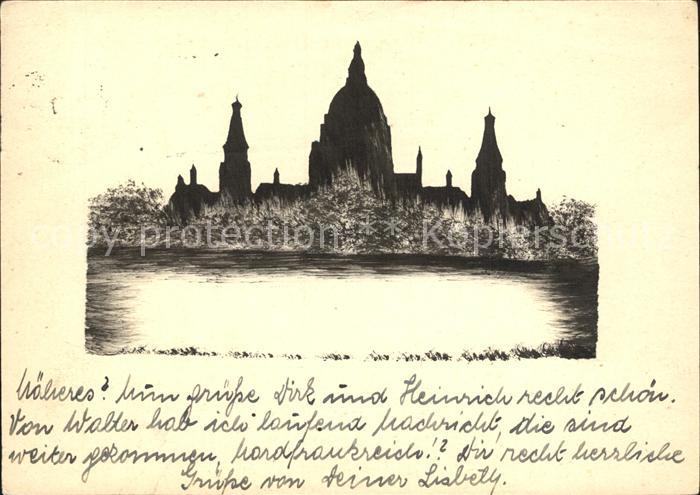 copy protection ** Kopierschutz
Näheres? Nun grüße Dirk und Heinrich recht schön.
Von Walter hab ich laufend Nachricht, die sind
weiter gekommen, Nordfrankreich!? Dir, recht herzliche
Grüße von Deiner Lisbeth.